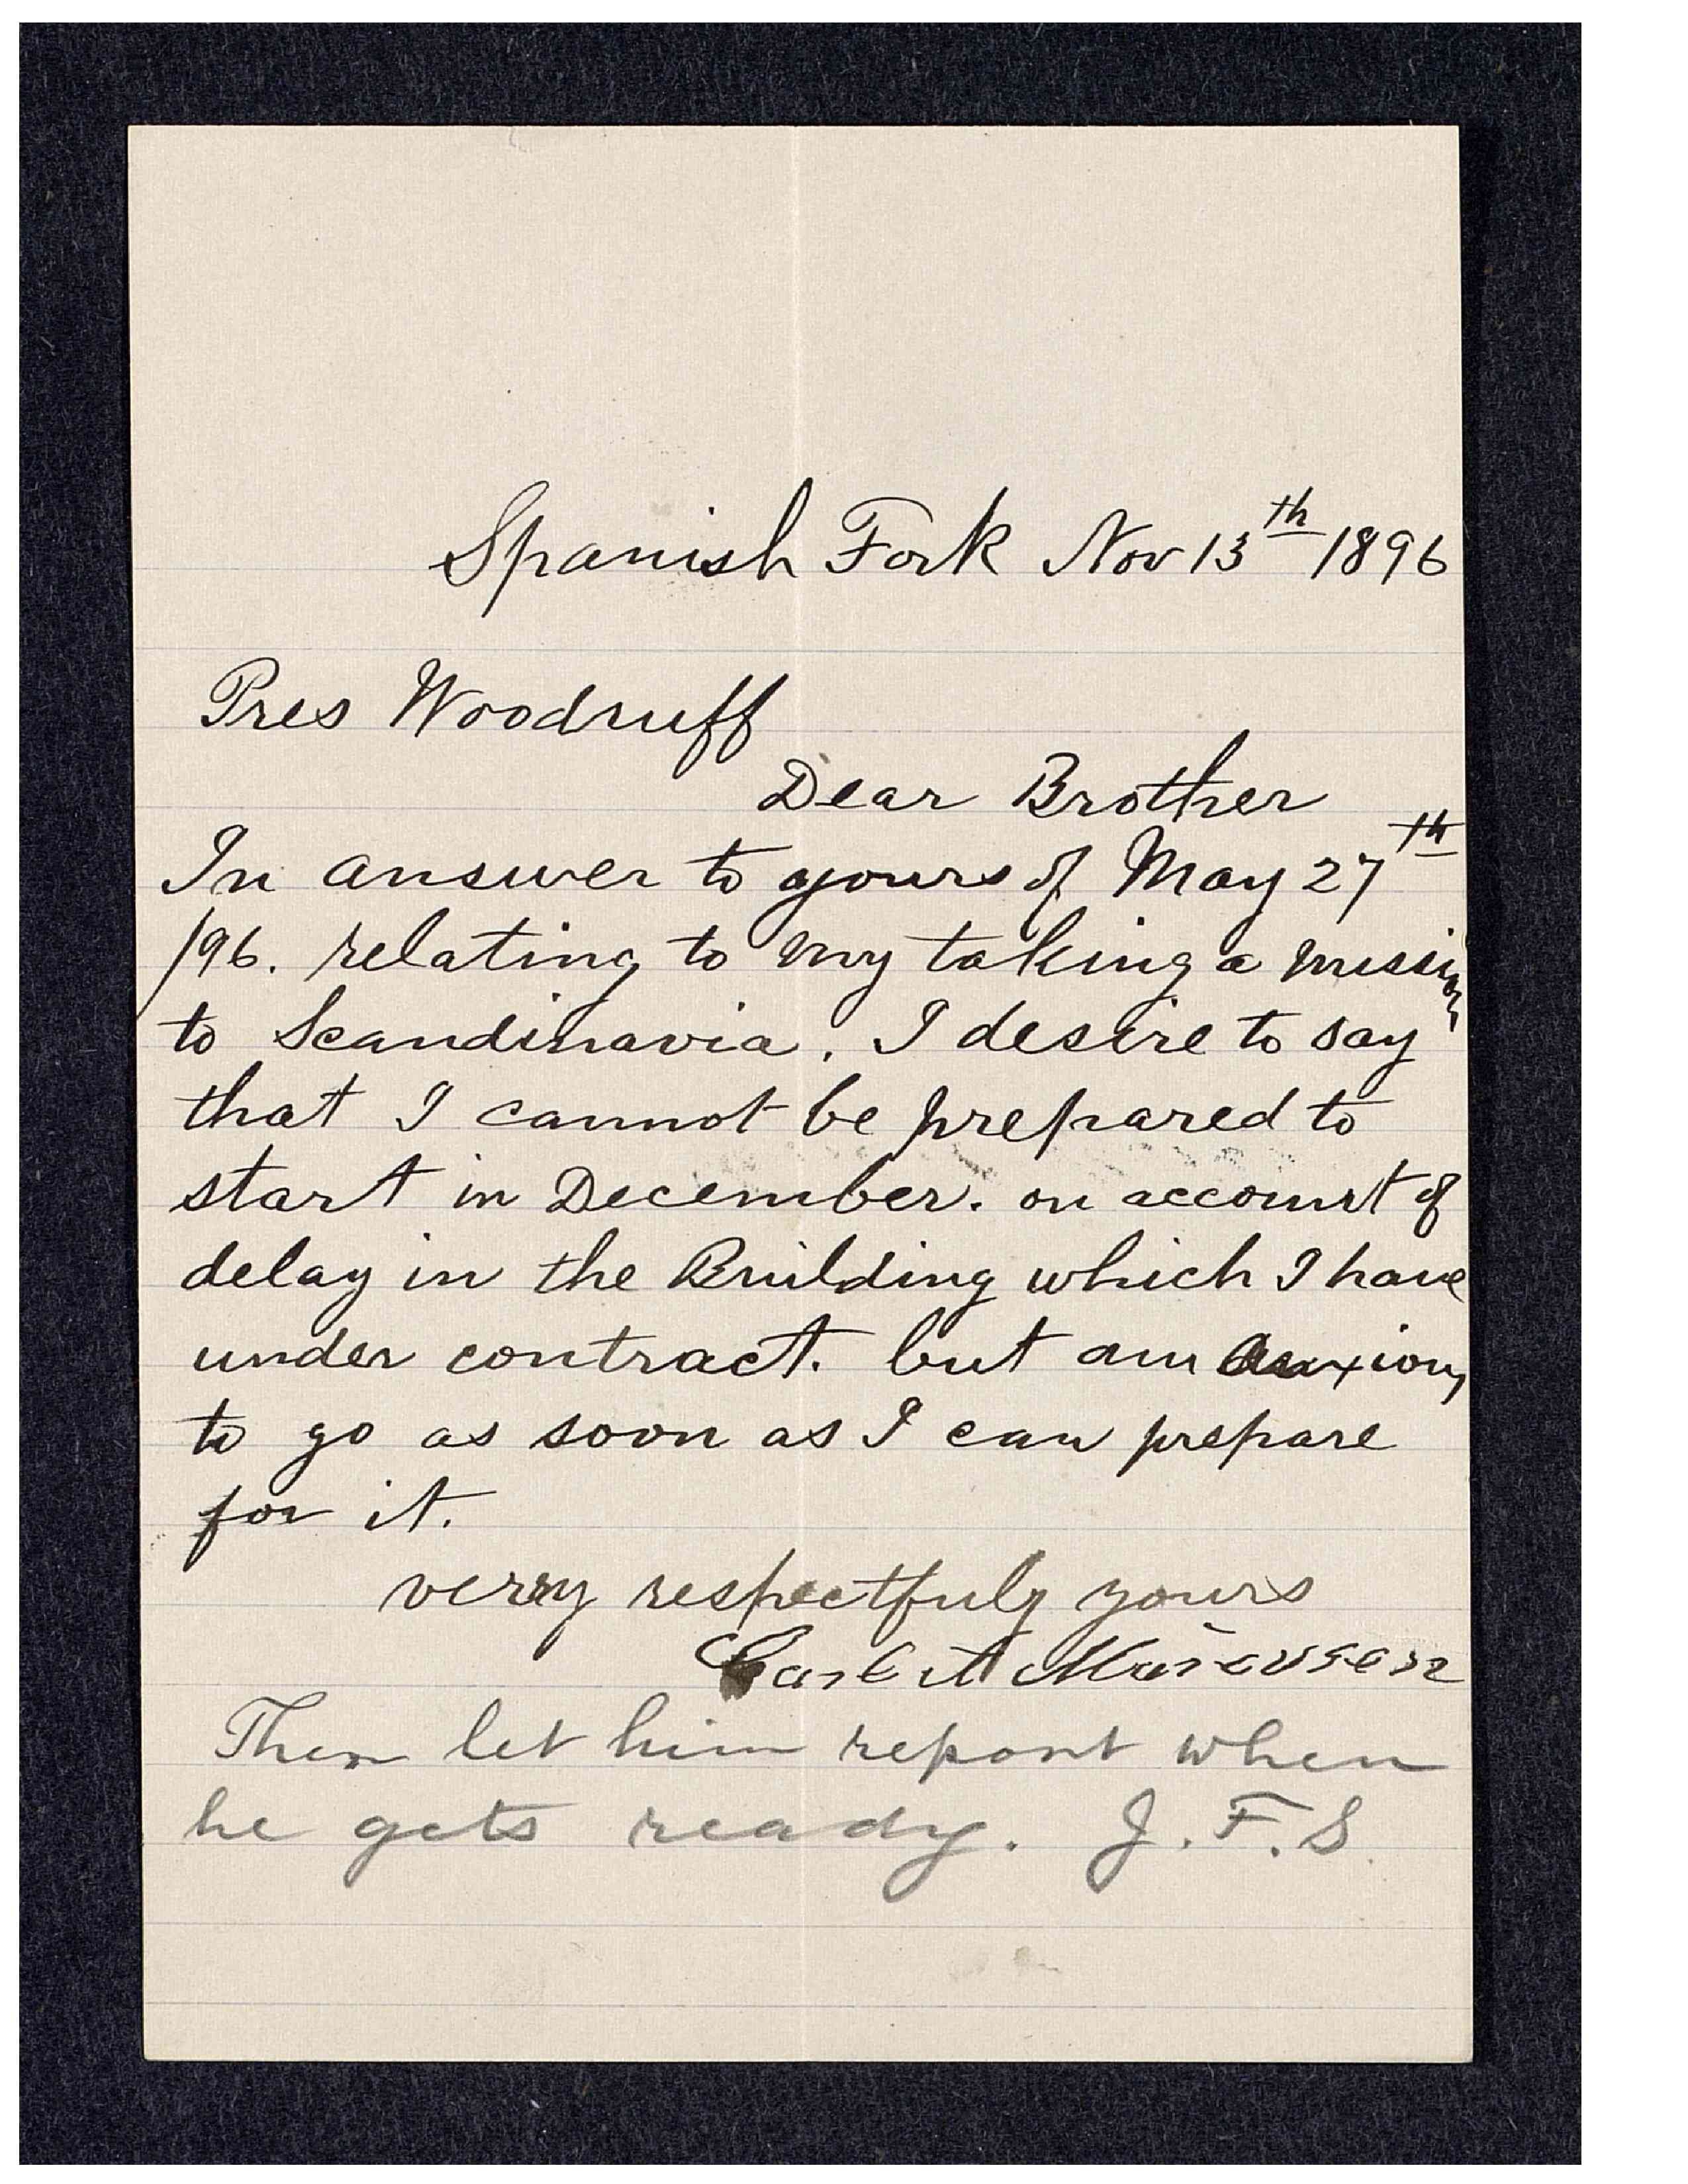 Spanish Fork Nov 13th 1896
Pres Woodruff
Dear Brother
In answer to yours of May 27th
/96. relating to my taking a mission
to Scandinavia. I desire to say
that I cannot be prepared to
start in December. on account of
delay in the Building which I have
under contract. but am anxious
to go as soon as I can prepare
for it.
verry respectfuly yours
Carl A
Then let him report when
he gets ready. J. F. S.